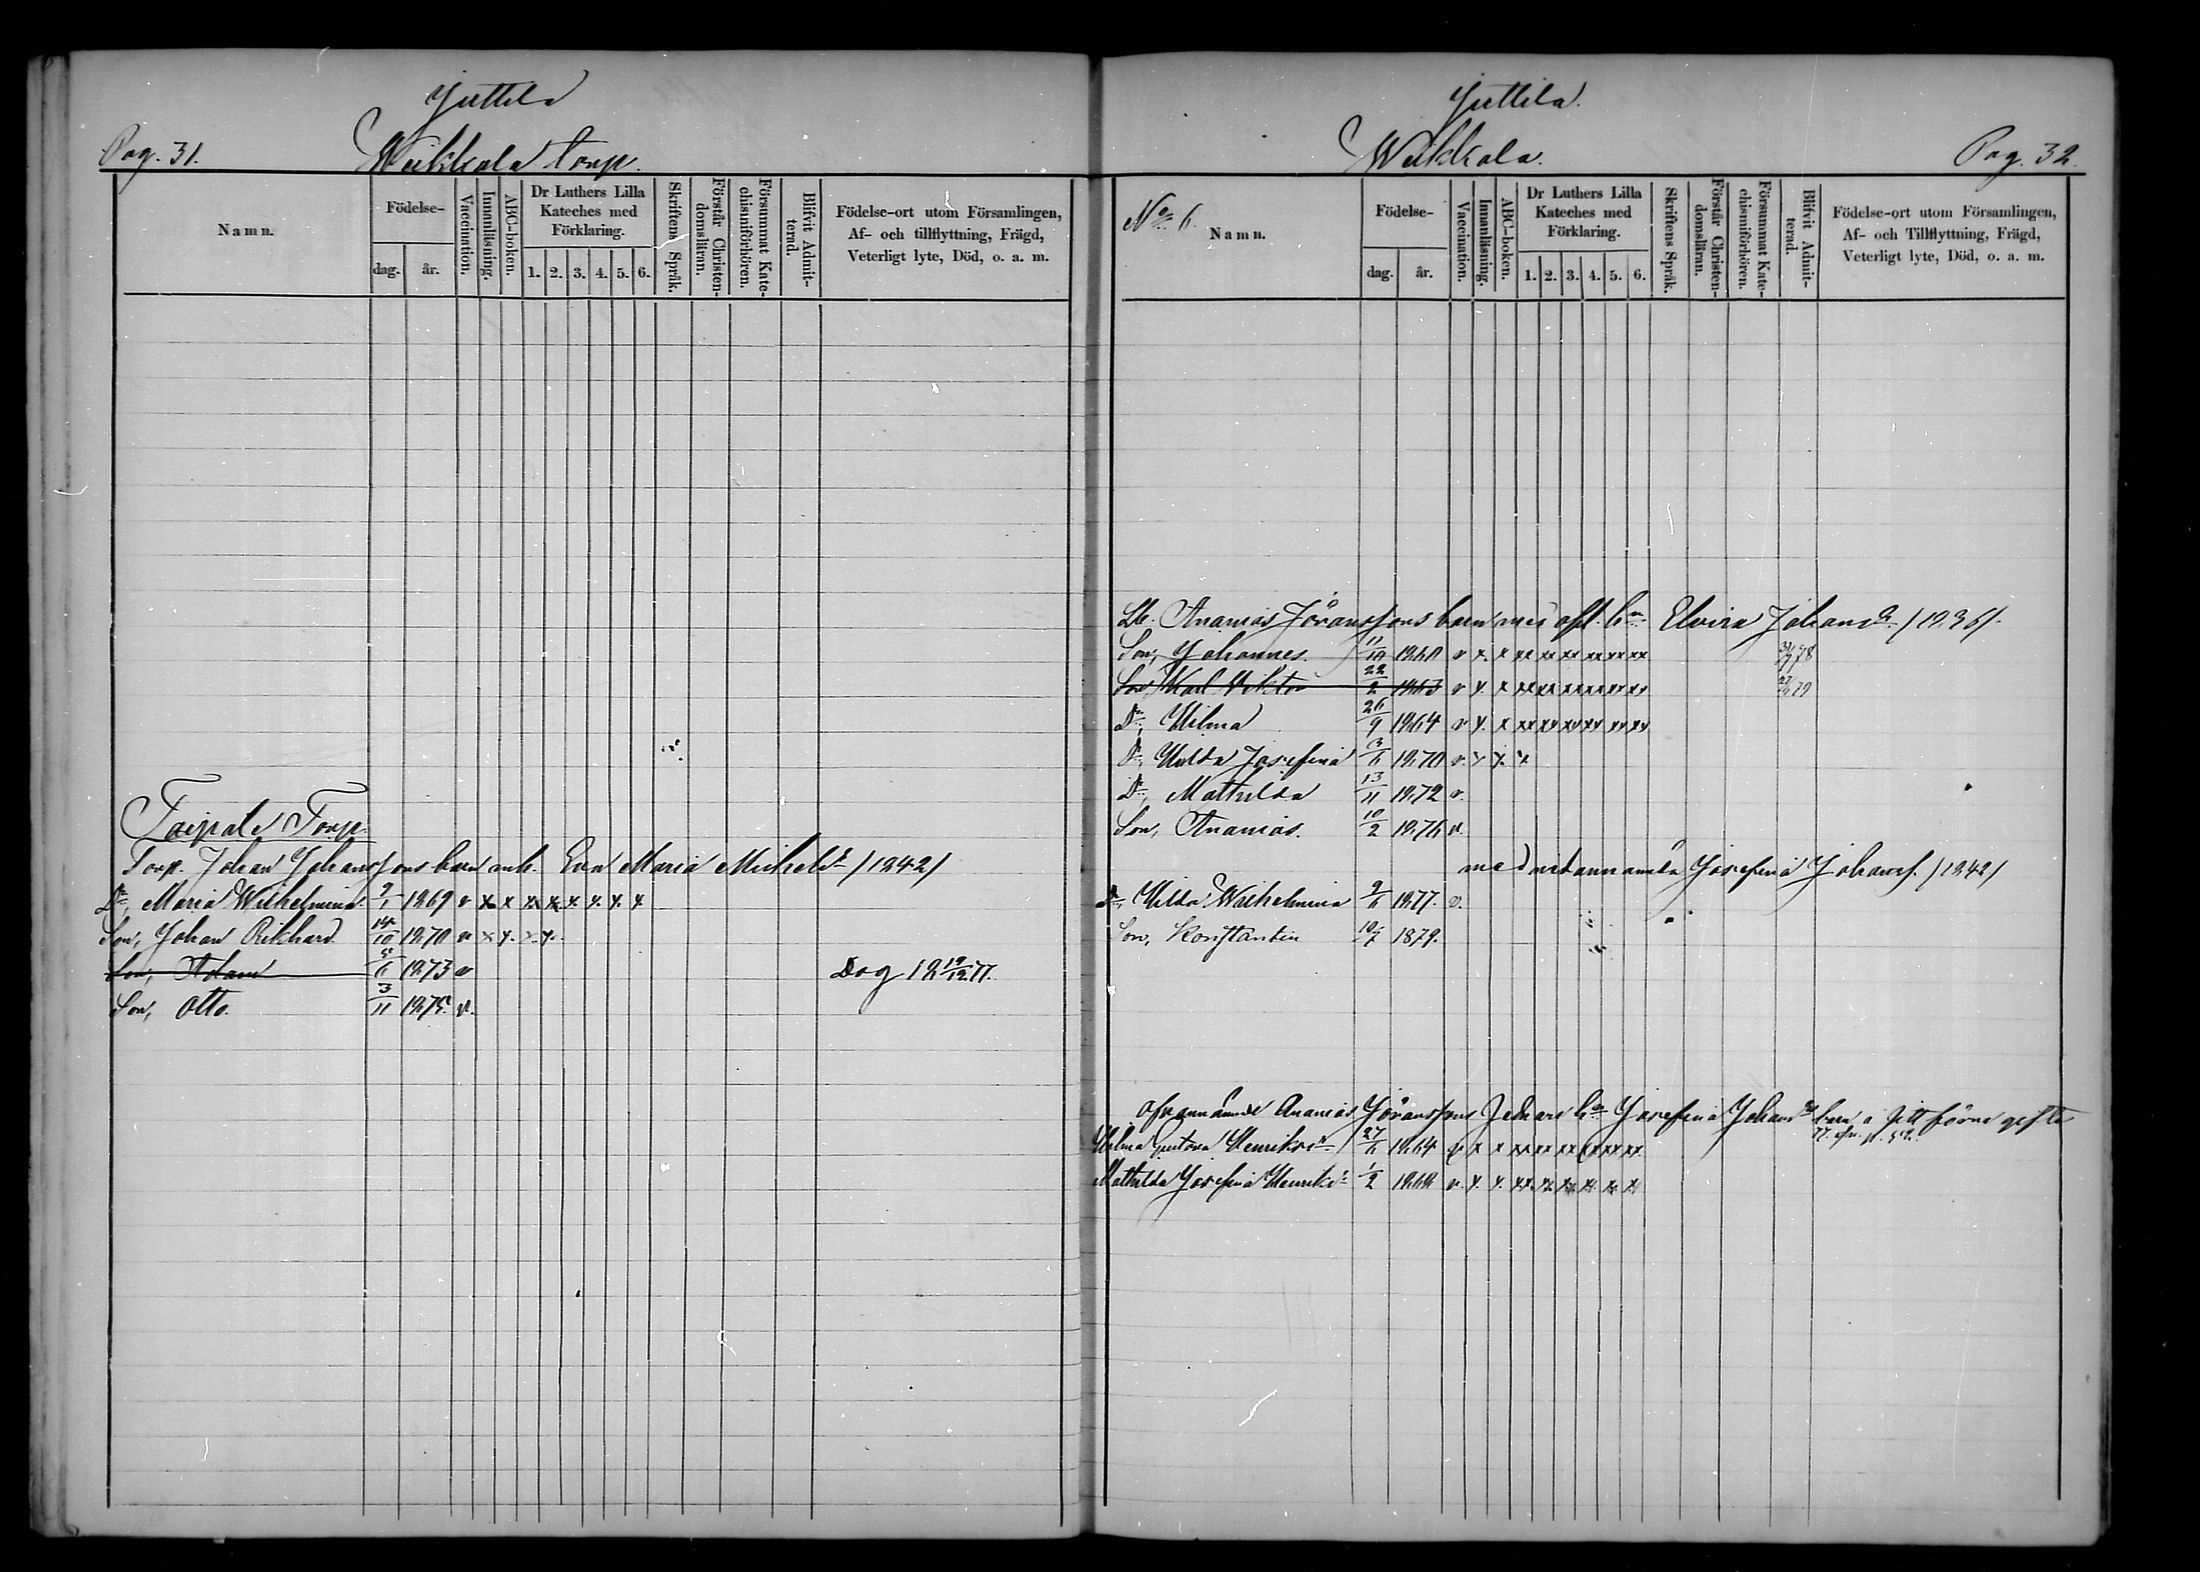 Juttila
Pag. 31. Weikkola torp.
Namn.
Födelse-
dag. år.
Vaccination.
Innanläsning.
ABC-boken.
Dr Luthers Lilla Kateches med Förklaring.
1. 2. 3. 4. 5. 6.
Skriftens Språk.
Förstår Christen-domsläran.
Försummat Kate-chismiförhören.
Blifvit Admit-terad.
Födelse-ort utom Församlingen,
Af- och tillflyttning, Frägd,
Veterligt lyte, Död, o. a. m.
Taipale Torp.
Torp. Johan Johanssons barn m. h. Eva Maria Michelsdr /1842/
Dr, Maria Wilhelmina 9/1 1869 v x x x x x x x x
Son, Johan Rikhard 14/10 1870 v x x x x
Son, Adam 5/6 1873 v Dog 18 19/12 77.
Son, Otto. 3/11 1875. v.
Juttila.
Weikkola. Pag. 32.
No 6. Namn.
Födelse-
dag. år.
Vaccination.
Innanläsning.
ABC-boken.
Dr Luthers Lilla Kateches med Förklaring.
1. 2. 3. 4. 5. 6.
Skriftens Språk.
Förstår Christen-domsläran.
Försummat Kate-chismiförhören.
Blifvit Admit-terad.
Födelse-ort utom Församlingen,
Af- och Tillflyttning, Frägd,
Veterligt lyte, Död, o. a. m.
Ananias Jöranssons barn med afl. hu Elvira Johansdr /1836/.
Son, Johannes. 1860 v x x xx xx xx xx xx xx
Son, Karl Viktor 22/2 1863 v x x xx xx xx xx xx xx
Dr, Hilma 26/9 1864 v x. x xx xx xx xx xx xx
Dr, Hulda Josefina 3/6 1870 v. x x. x
Dr, Mathilda 13/11 1872 v.
Son, Ananias. 10/2 1876 v.
med nedannämda Josefina Johansdr /1842/
Dr, Hilda Wilhelmina 9/6 1877. v.
Son, Konstantin 10/7 1879.
ofvannämde Ananias Jöranssons hu Josefina Johansdr barn
Hilma Gustava Henriksdr 27/6 1864 v x x xx xx xx xx xx xx
Mathilda Josefina Henriksdr 1/2 1868 v. x. x. xx. xx xx xx xx xx